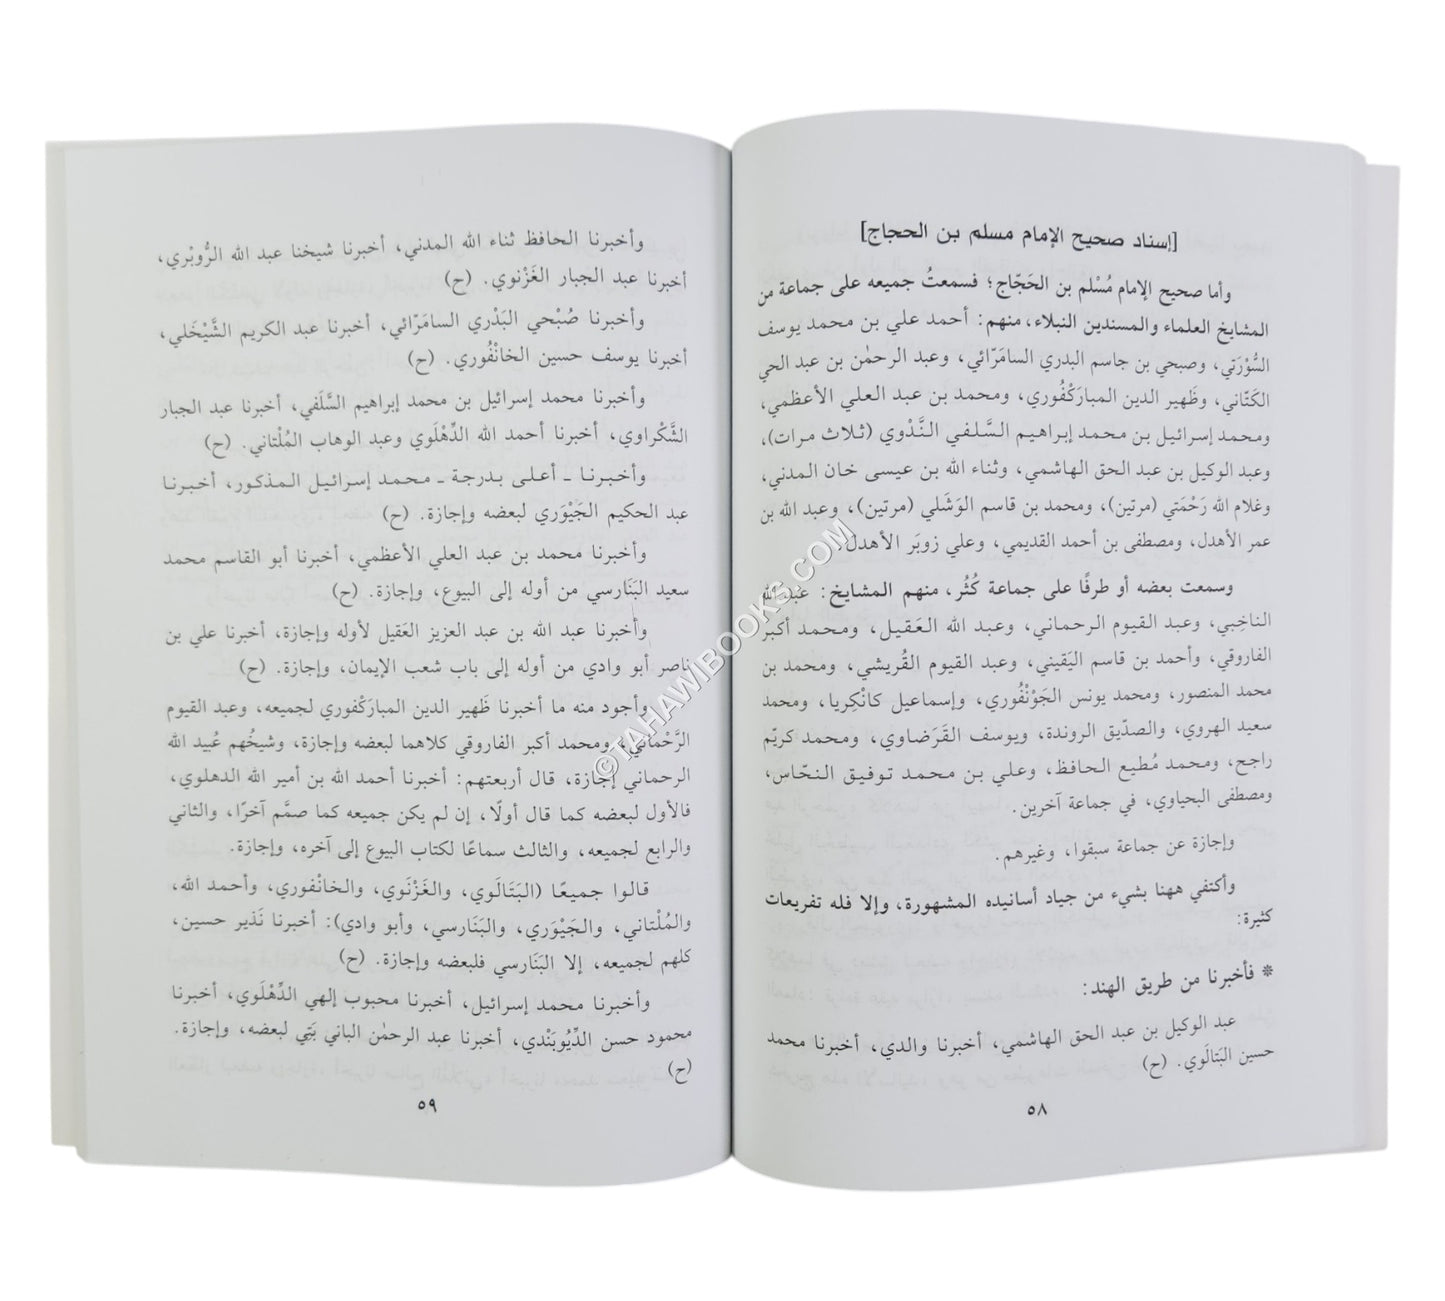 [إسناد صحيح الإمام مسلم بن الحجاج]
وأما صحيح الإمام مُسْلم بن الحَجّاج؛ فسمعتُ جميعه على جماعة من
المشايخ العلماء والمسندين النبلاء، منهم: أحمد علي بن محمد يوسف
السُّوْرَتي، وصبحي بن جاسم البدري السامَرّائي، وعبد الرحمٰن بن عبد الحي
الكَتّاني، وظَهير الدين المباركْفُوري، ومحمد بن عبد العلي الأعظمي،
ومحمد إسرائيل بن محمد إبراهيم السَّلفي النَّدْوي (ثلاث مرات)،
وعبد الوكيل بن عبد الحق الهاشمي، وثناء الله بن عيسى خان المدني،
وغلام الله رَحْمَتي (مرتين)، ومحمد بن قاسم الوَشَلي (مرتين)، وعبد الله بن
عمر الأهدل، ومصطفى بن أحمد القديمي، وعلي زوبَر الأهدل.
وسمعت بعضه أو طرفًا على جماعة كُثُر، منهم المشايخ: عبد الله
الناخِبي، وعبد القيوم الرحماني، وعبد الله العَقيل، ومحمد أكبر
الفاروقي، وأحمد بن قاسم اليَقيني، وعبد القيوم القُريشي، ومحمد بن
محمد المنصور، ومحمد يونس الجَوْنْفُوري، وإسماعيل كانْكِريا، ومحمد
سعيد الهروي، والصدّيق الروندة، ويوسف القَرَضاوي، ومحمد كريّم
راجح، ومحمد مُطيع الحافظ، وعلي بن محمد توفيق النحّاس،
ومصطفى البحياوي، في جماعة آخرين.
وإجازة عن جماعة سبقوا، وغيرهم.
وأكتفي ههنا بشيء من جياد أسانيده المشهورة، وإلا فله تفريعات
كثيرة:
* فأخبرنا من طريق الهند:
عبد الوكيل بن عبد الحق الهاشمي، أخبرنا والدي، أخبرنا محمد
حسين البَتالَوي. (ح)
٥٨
وأخبرنا الحافظ ثناء الله المدني، أخبرنا شيخنا عبد الله الرُّوبْري،
أخبرنا عبد الجبار الغَزْنوي. (ح)
وأخبرنا صُبْحي البَدْري السامَرّائي، أخبرنا عبد الكريم الشَّيْخَلي،
أخبرنا يوسف حسين الخانْفُوري. (ح)
وأخبرنا محمد إسرائيل بن محمد إبراهيم السَّلَفي، أخبرنا عبد الجبار
الشَّكْراوي، أخبرنا أحمد الله الدِّهْلَوي وعبد الوهاب المُلْتاني. (ح)
وأخبرنا ـ أعلى بدرجة ـ محمد إسرائيل المذكور، أخبرنا
عبد الحكيم الجَيْوَري لبعضه وإجازة. (ح)
وأخبرنا محمد بن عبد العلي الأعظمي، أخبرنا أبو القاسم محمد
سعيد البَنَارسي من أوله إلى البيوع، وإجازة. (ح)
وأخبرنا عبد الله بن عبد العزيز العَقيل لأوله وإجازة، أخبرنا علي بن
ناصر أبو وادي من أوله إلى باب شعب الإيمان، وإجازة. (ح)
وأجود منه ما أخبرنا ظَهير الدين المبارَكْفوري لجميعه، وعبد القيوم
الرَّحْماني، ومحمد أكبر الفاروقي كلاهما لبعضه وإجازة، وشيخُهم عُبيد الله
الرحماني إجازة، قال أربعتهم: أخبرنا أحمد الله بن أمير الله الدهلوي،
فالأول لبعضه كما قال أولًا، إن لم يكن جميعه كما صمَّم آخرًا، والثاني
والرابع لجميعه، والثالث سماعًا لكتاب البيوع إلى آخره، وإجازة.
قالوا جميعًا (البَتَالَوي، والغَزْنَوي، والخانْفوري، وأحمد الله،
والمُلْتاني، والجَيْوَري، والبَنَارسي، وأبو وادي): أخبرنا نَذير حسين،
كلهم لجميعه، إلا البَنَارسي فلبعضه وإجازة. (ح)
وأخبرنا محمد إسرائيل، أخبرنا محبوب إلهي الدِّهْلَوي، أخبرنا
محمود حسن الدِّيُوبَنْدي، أخبرنا عبد الرحمٰن الباني بَتِي لبعضه، وإجازة.
(ح)
٥٩
©TAHAWIBOOKS.COM